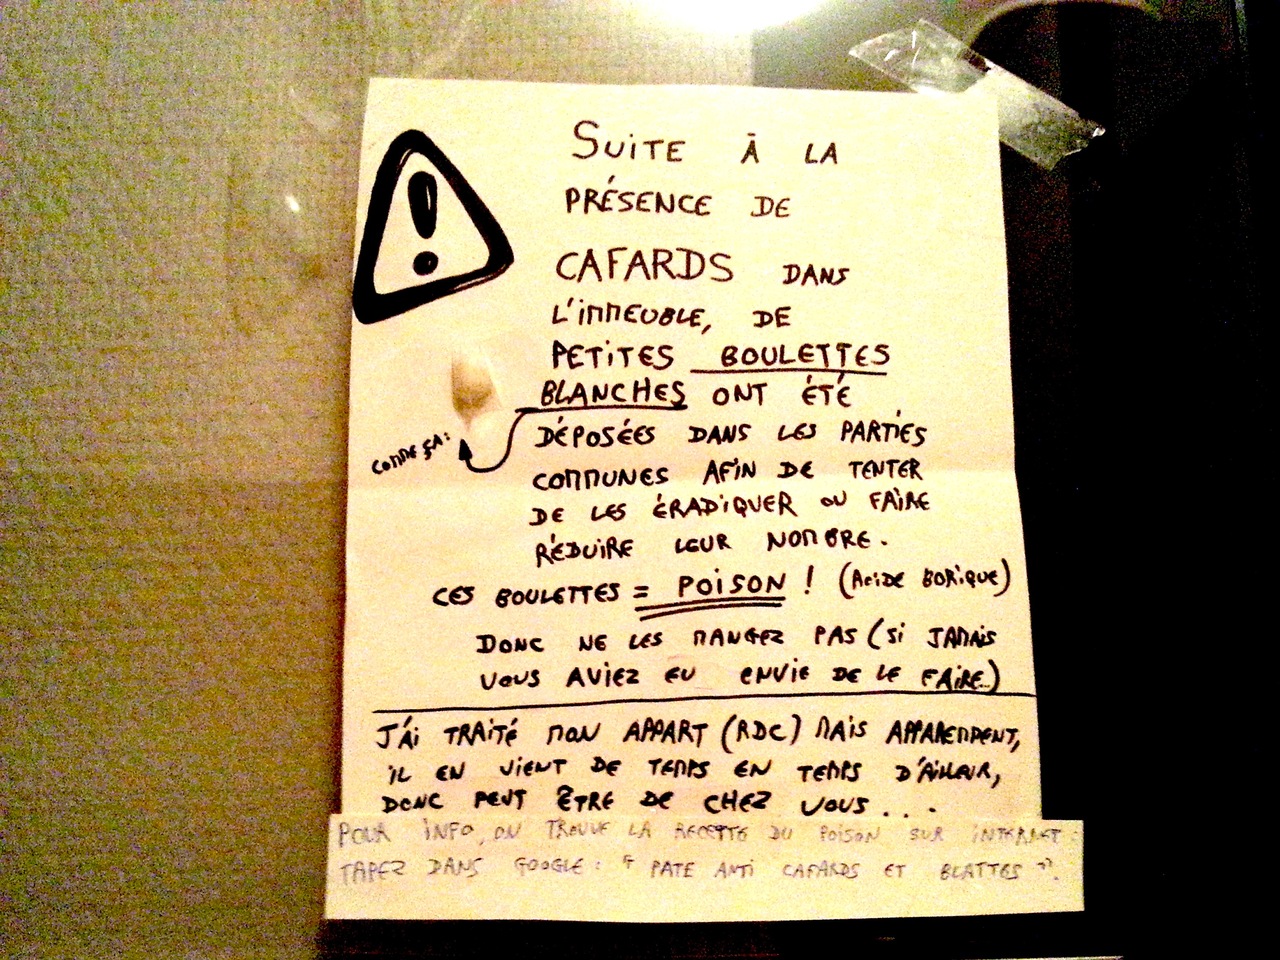 SUITE À LA
PRÉSENCE DE
CAFARDS DANS
L'IMMEUBLE, DE
PETITES BOULETTES
BLANCHES ONT ÉTÉ
COMME ÇA:
DÉPOSÉES DANS LES PARTIES
COMMUNES AFIN DE TENTER
DE LES ÉRADIQUER OU FAIRE
RÉDUIRE LEUR NOMBRE.
CES BOULETTES = POISON ! (ACIDE BORIQUE)
DONC NE LES MANGEZ PAS (SI JAMAIS
VOUS AVIEZ EU ENVIE DE LE FAIRE..)
J'AI TRAITÉ MON APPART (RDC) MAIS APPAREMMENT,
IL EN VIENT DE TEMPS EN TEMPS D'AILLEUR,
DONC PEUT ÊTRE DE CHEZ VOUS...
POUR INFO, ON TROUVE LA RECETTE DU POISON SUR INTERNET:
TAPEZ DANS GOOGLE: "PATE ANTI CAFARDS ET BLATTES".